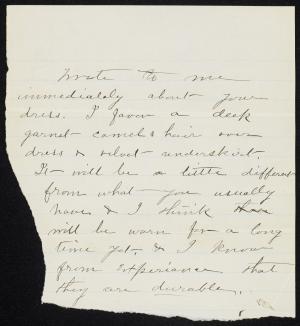 Write to me
immediately about your
dress. I favor a deck
garnet camels hair over
dress & velvet underskirt
It will be a little different
from what you usually
have & I think
will be warm for a long
time yet, & I know
from experience that
they are durable.